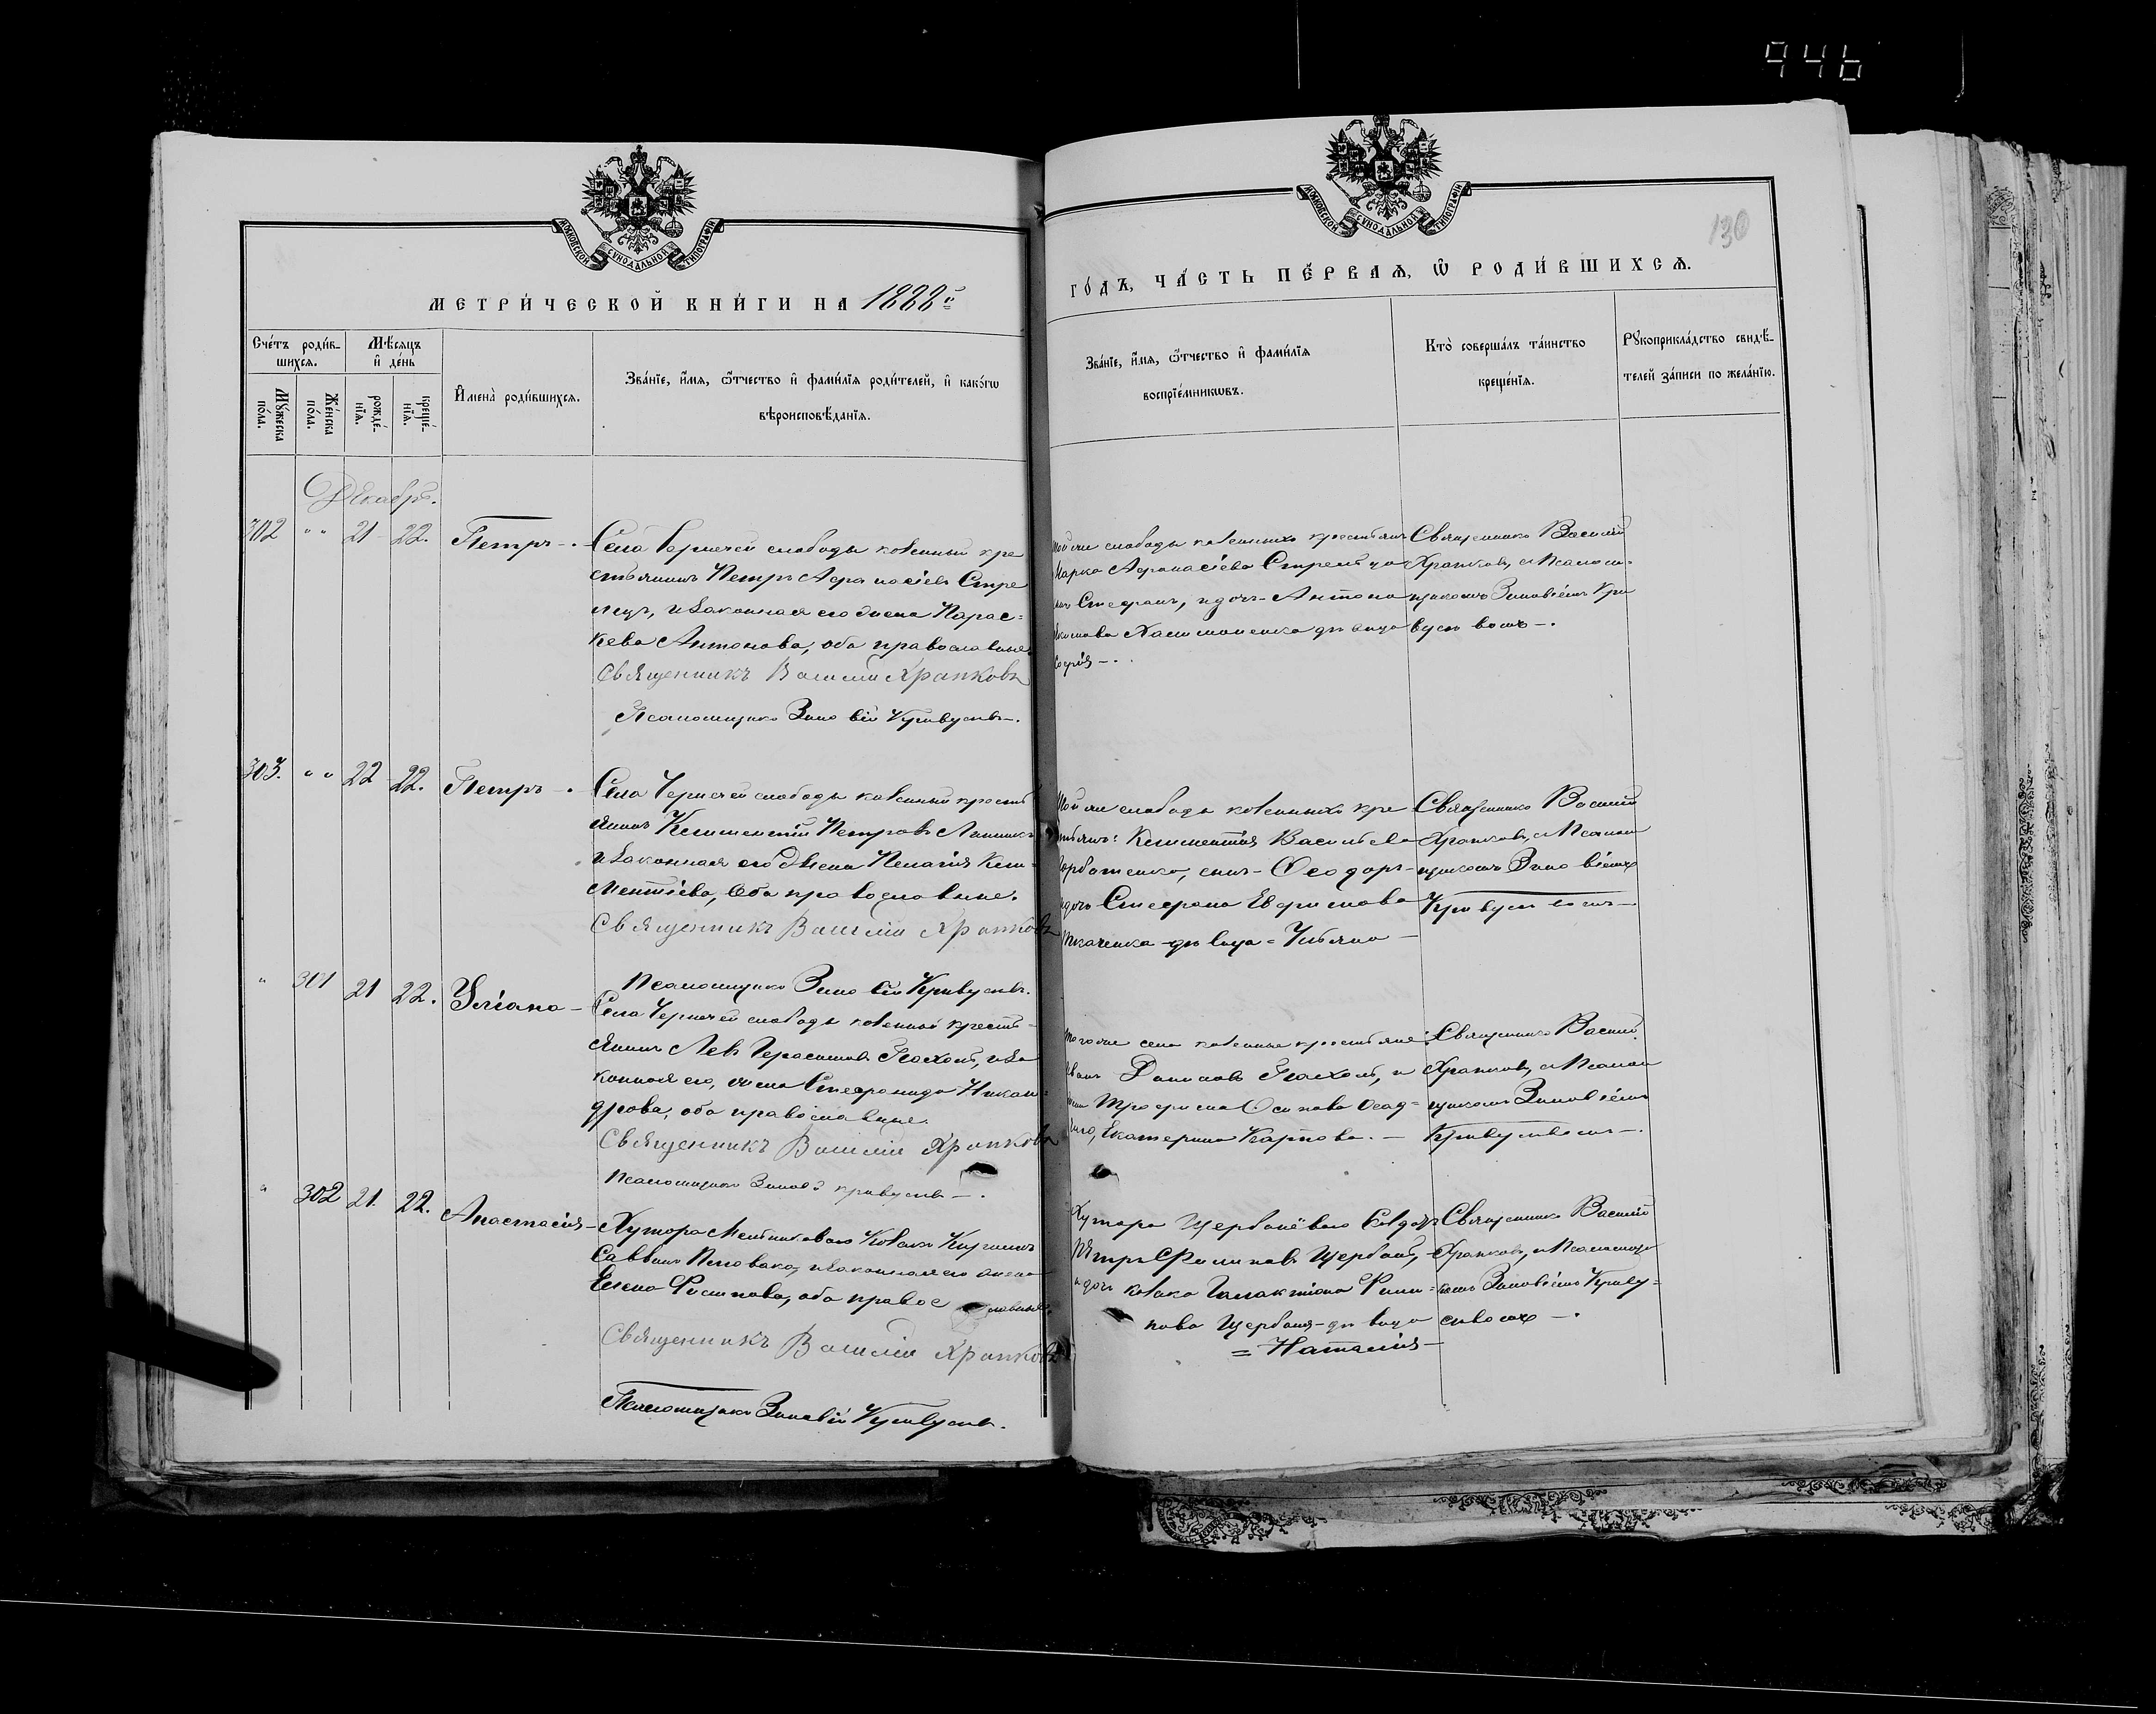 946
130
МОСКОВСКОЙ СѴНОДАЛЬНОЙ ТИПОГРАФІИ
МОСКОВСКОЙ СѴНОДАЛЬНОЙ ТИПОГРАФІИ
МЕТРИ́ЧЕСКОЙ КНИ́ГИ НА 1888й
ГО́ДЪ, ЧА́СТЬ ПЕ́РВАѦ, Ѽ РОДИ́ВШИХСѦ.
Сче́тъ роди́в-
шихсѧ.
Мѣ́сѧцъ
и҆ де́нь
Мꙋ́жеска
по́ла.
Же́нска
по́ла.
рожде́-
нїѧ.
креще́-
нїѧ.
И҆мена̀ роди́вшихсѧ.
Зва́нїе, и҆́мѧ, ѻ҆́тчество и҆ фами́лїѧ роди́телей, и҆ како́гѡ
вѣроисповѣ́данїѧ.
Зва́нїе, и҆́мѧ, ѻ҆́тчество и҆ фами́лїѧ
воспрїе́мникѡвъ.
Кто̀ соверша́лъ та́инство
креще́нїѧ.
Рꙋкоприкла́дство свидѣ́-
телей за́писи по жела́нїю.
Декабрь.
302 " " 21 22. Петръ-.
Села Чернечей слободы казенный кре
стьянинъ Петръ Афанасіевъ Стре
лецъ, и законная его жена Парас=
кева Антонова, оба православные.
Священникъ Василій Храпковъ
Псаломщикъ Зиновій Кривусевъ-.
той же слободы казенныхъ крестьянъ
Марка Афанасіева Стрельца
Стефанъ, и дочь Антона
девица
Софія-.
Священникъ Василій
Храпковъ, съ Псаломщи-
комъ Зиновіемъ Кри
вусевымъ-.
303. " " 22 22. Петръ-.
Села Чернечей слободы казенный кресть
янинъ Климентій Петровъ
и законная его Жена Пелагія Кли-
ментіева, Оба православные.
Священникъ Василій Храпковъ
Псаломщикъ Зиновій Кривусевъ.
той же слободы казенныхъ кре
стьянъ: Климентія Васильева
Горбатенка, сынъ- Феодоръ-
и дочь Стефана Ефимова
Ткаченка девица = Ульяна-
Священникъ Василій
Храпковъ, съ Псалом
щикомъ Зиновіемъ
Кривусевымъ-
" 301 21 22. Уліана-
Села Чернечей слободы казенный кресть-
янинъ Левъ Герасимовъ и за
конная его, жена Стефанида Никан=
дрова, оба православные.
Священникъ Василій Храпковъ
Псаломщикъ Зиновій Кривусевъ-.
того же села казенные крестьяне:
Иванъ Даниловъ и
жена Трофима Осипова Осад=
чаго, Екатерина Карпова.-
Священникъ Василій
Храпковъ, съ Псалом
щикомъ Зиновіемъ
Кривусевымъ-.
" 302 21. 22. Анастасія-
Хутора Мельниковаго Козакъ
Саввинъ и законная его жена
Елена Филипова, оба православные.
Священникъ Василій Храпковъ
Псаломщикъ Зиновій Кривусевъ.
Хутора Щербанёваго
Петръ Филиповъ Щербань,
и дочь козака Галактіона Фили=
пова Щербаня-девица
= Наталія-
Священникъ Василій
Храпковъ, съ Псаломщи
комъ Зиновіемъ Криву=
севымъ-.